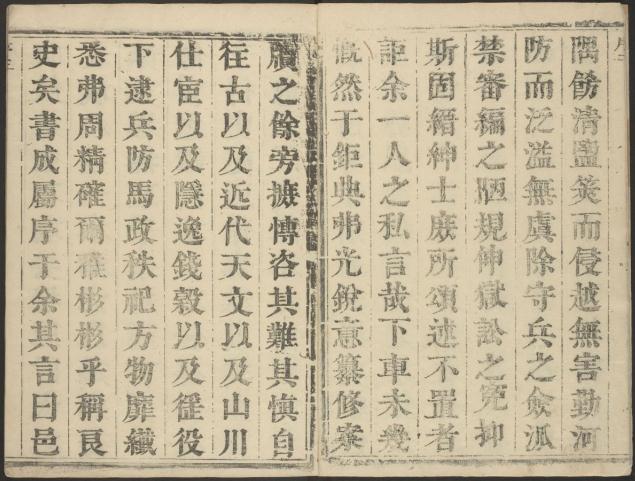 隅飭清鹽筴而侵越無害勤河
防而泛濫無虞除守兵之僉派
禁審編之陋規伸獄訟之冤抑
斯固縉紳士庶所頌述不置者
詎余一人之私言哉下車未幾
慨然于鉅典弗光銳意纂修案
牘之餘旁摭博咨其難其慎自
徃古以及近代天文以及山川
仕宦以及隱逸錢榖以及徭役
下逮兵防馬政秩祀方物靡纖
悉弗周精確爾雅彬彬乎稱良
史矣書成屬序于余其言曰邑